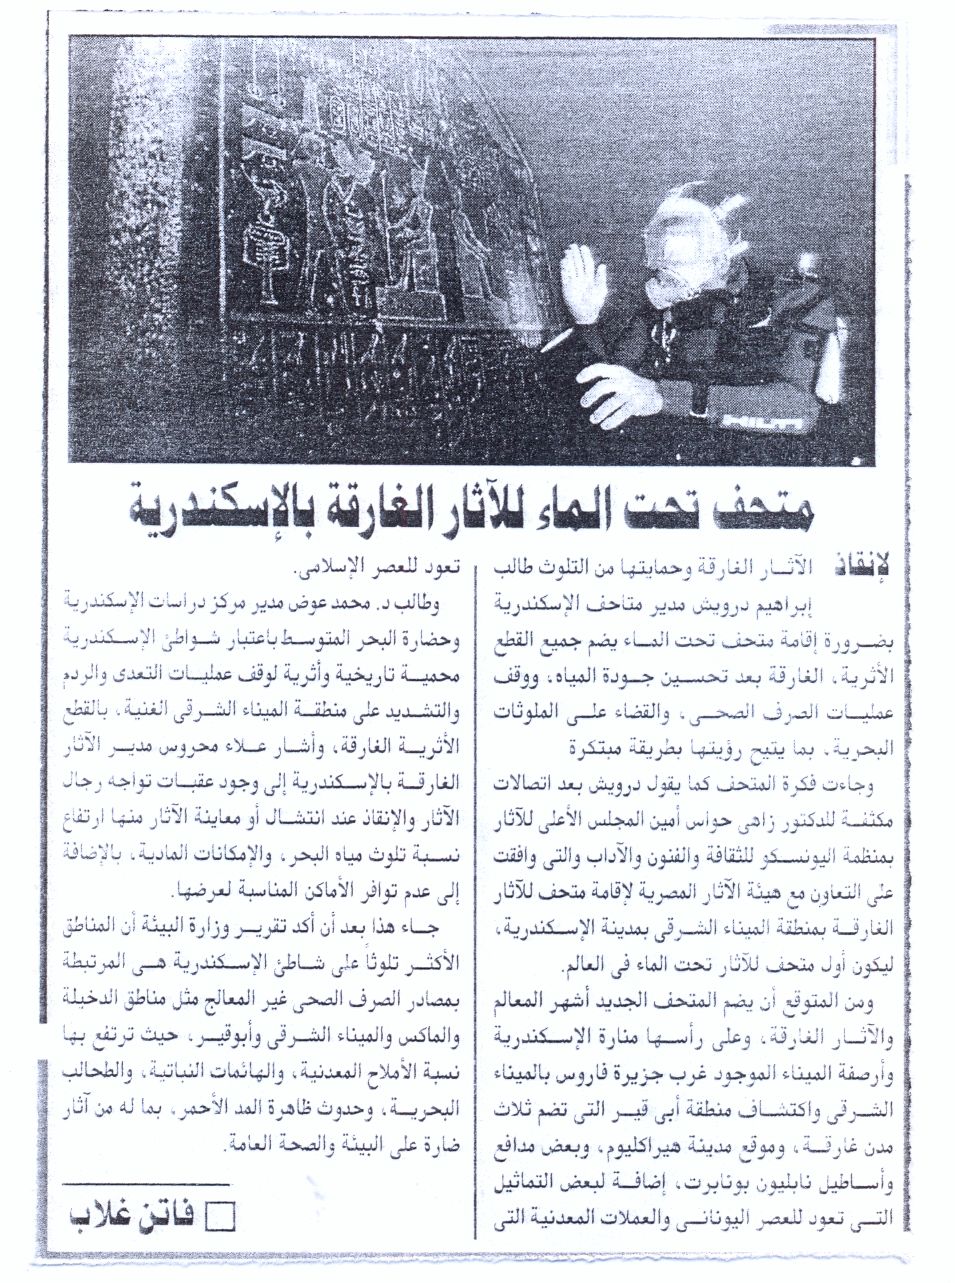 HILTI
متحف تحت الماء للآثار الغارقة بالإسكندرية
لإنقاذ الآثار الغارقة وحمايتها من التلوث طالب
إبراهيم درويش مدير متاحف الإسكندرية
بضرورة إقامة متحف تحت الماء يضم جميع القطع
الأثرية، الغارقة بعد تحسين جودة المياه، ووقف
عمليات الصرف الصحى، والقضاء على الملوثات
البحرية، بما يتيح رؤيتها بطريقة مبتكرة
وجاءت فكرة المتحف كما يقول درويش بعد اتصالات
مكثفة للدكتور زاهى حواس أمين المجلس الأعلى للآثار
بمنظمة اليونسكو للثقافة والفنون والآداب والتى وافقت
على التعاون مع هيئة الآثار المصرية لإقامة متحف للآثار
الغارقة بمنطقة الميناء الشرقى بمدينة الإسكندرية،
ليكون أول متحف للآثار تحت الماء فى العالم.
ومن المتوقع أن يضم المتحف الجديد أشهر المعالم
والآثار الغارقة، وعلى رأسها منارة الإسكندرية
وأرصفة الميناء الموجود غرب جزيرة فاروس بالميناء
الشرقى واكتشاف منطقة أبى قير التى تضم ثلاث
مدن غارقة، وموقع مدينة هيراكليوم، وبعض مدافع
وأساطيل نابليون بونابرت، إضافة لبعض التماثيل
التى تعود للعصر اليونانى والعملات المعدنية التى
تعود للعصر الإسلامى.
وطالب د. محمد عوض مدير مركز دراسات الإسكندرية
وحضارة البحر المتوسط باعتبار شواطئ الإسكندرية
محمية تاريخية وأثرية لوقف عمليات التعدى والردم
والتشديد على منطقة الميناء الشرقى الغنية، بالقطع
الأثرية الغارقة، وأشار علاء محروس مدير الآثار
الغارقة بالإسكندرية إلى وجود عقبات تواجه رجال
الآثار والإنقاذ عند انتشال أو معاينة الآثار منها ارتفاع
نسبة تلوث مياه البحر، والإمكانات المادية، بالإضافة
إلى عدم توافر الأماكن المناسبة لعرضها.
جاء هذا بعد أن أكد تقرير وزارة البيئة أن المناطق
الأكثر تلوثًا على شاطئ الإسكندرية هى المرتبطة
بمصادر الصرف الصحى غير المعالج مثل مناطق الدخيلة
والماكس والميناء الشرقى وأبوقير، حيث ترتفع بها
نسبة الأملاح المعدنية، والهائمات النباتية، والطحالب
البحرية، وحدوث ظاهرة المد الأحمر، بما له من آثار
ضارة على البيئة والصحة العامة.
فاتن غلاب